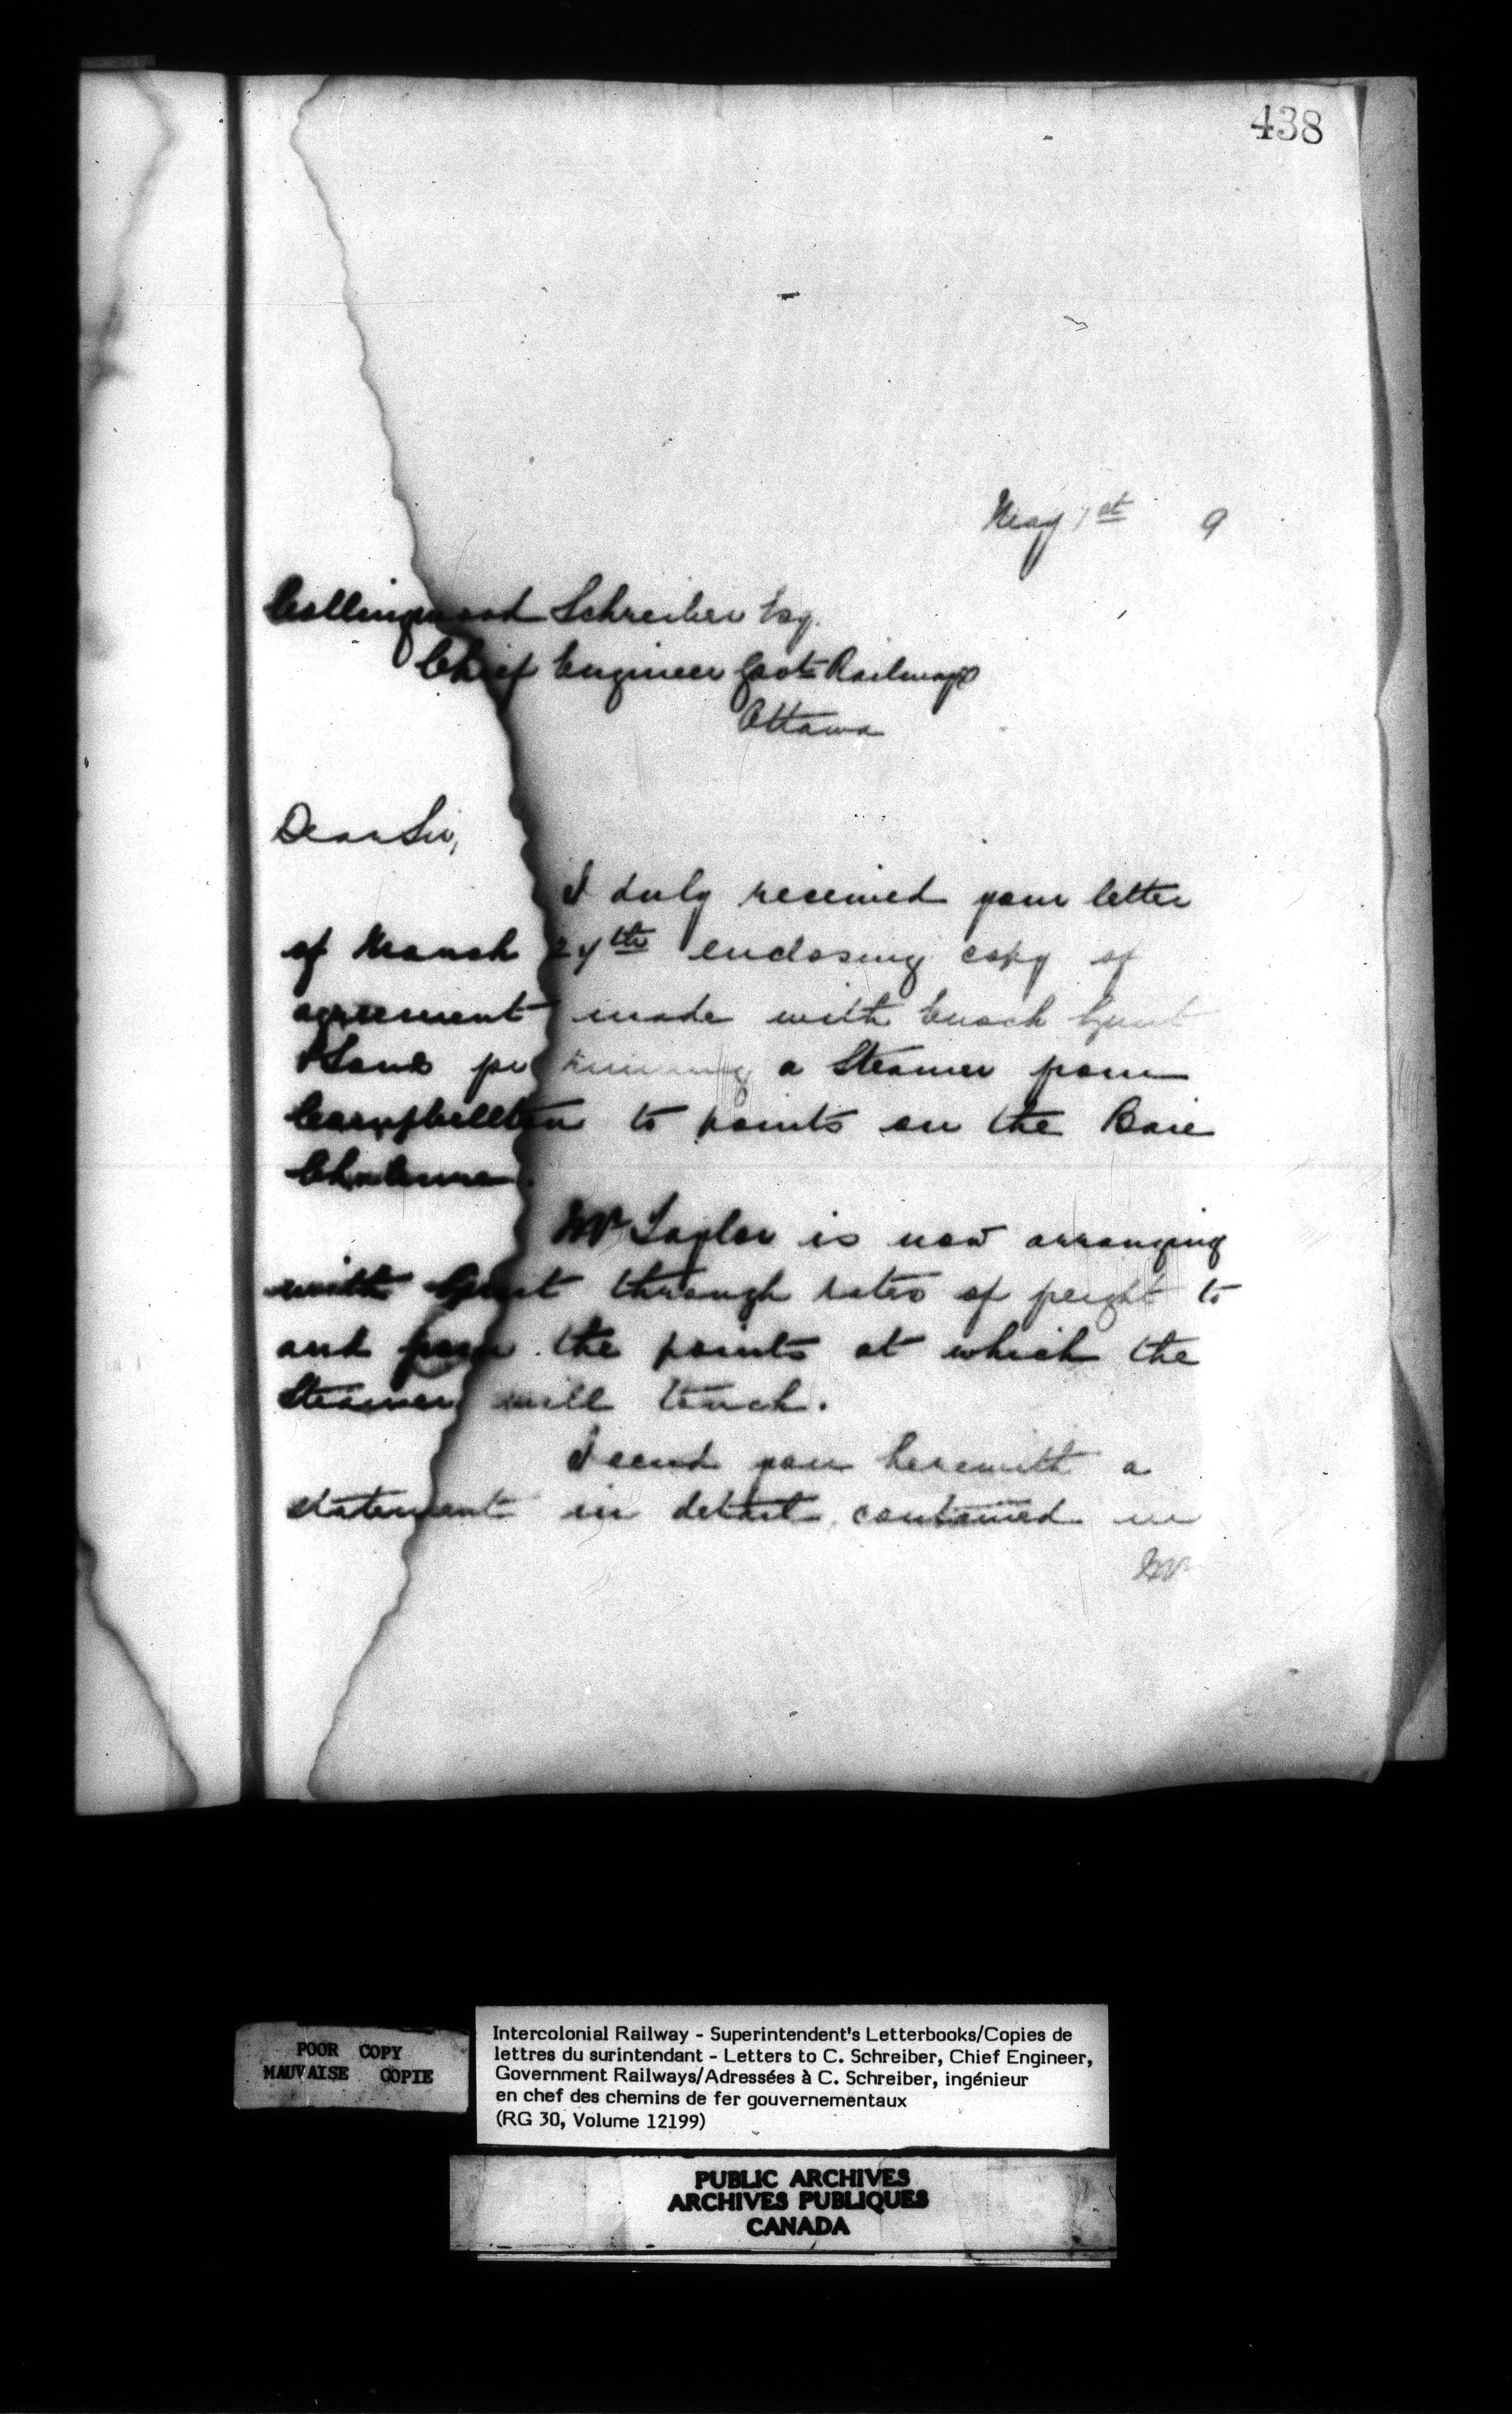 438
May 1st 9
Collingwood Schreiber Esq.
Chief Engineer Govt Railways
Ottawa
Dear Sir,
I duly received your letter
of March 24th enclosing copy of
agreement made with Enoch
& Sons for running a Steamer from
Campbellton to points on the Baie
Chaleurs.
Mr Taylor is now arranging
with through rates of freight to
and from the points at which the
Steamer will touch.
I send you herewith a
statement in detail, contained in
Mr
POOR COPY
MAUVAISE COPIE
Intercolonial Railway - Superintendent's Letterbooks/Copies de
lettres du surintendant - Letters to C. Schreiber, Chief Engineer,
Government Railways/Adressées à C. Schreiber, ingénieur
en chef des chemins de fer gouvernementaux
(RG 30, Volume 12199)
PUBLIC ARCHIVES
ARCHIVES PUBLIQUES
CANADA